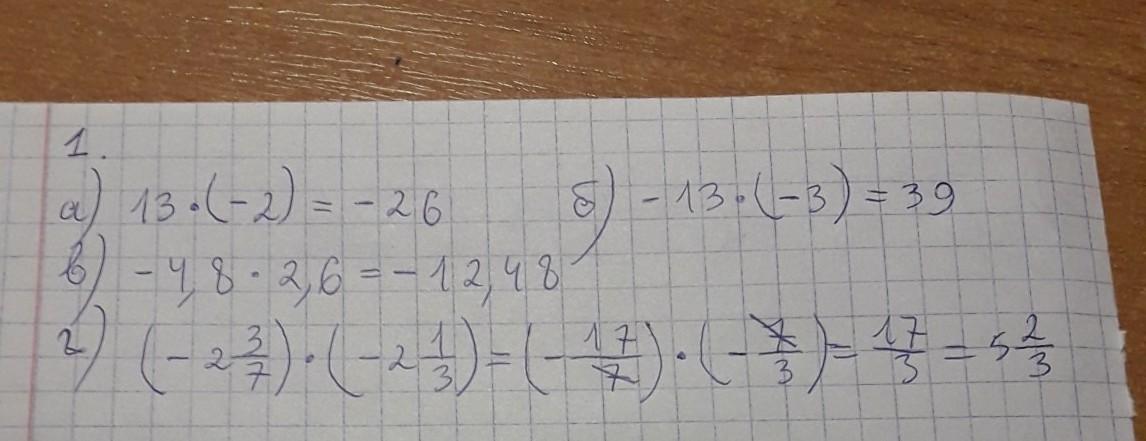 1.
а) 13·(-2) = -26 б) -13·(-3) = 39
в) -4,8 · 2,6 = -12,48
г) (-2 3/7)·(-2 1/3) = (-17/7)·(-7/3) = 17/3 = 5 2/3